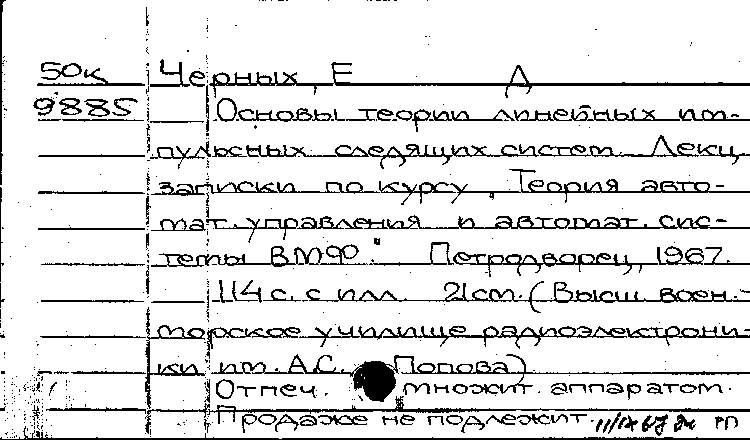 50к Черных, Е Д
9885 Основы теории линейных им-
пульсных следящих систем. Лекц.
записки по курсу „Теория авто-
мат. управления и автомат. сис-
темы ВМФ." Петродворец, 1967.
114 с. с илл. 21 см. (Высш. воен.-
морское училище радиоэлектрони-
ки им. А.С. Попова)
Отпеч. множит. аппаратом.
Продаже не подлежит.